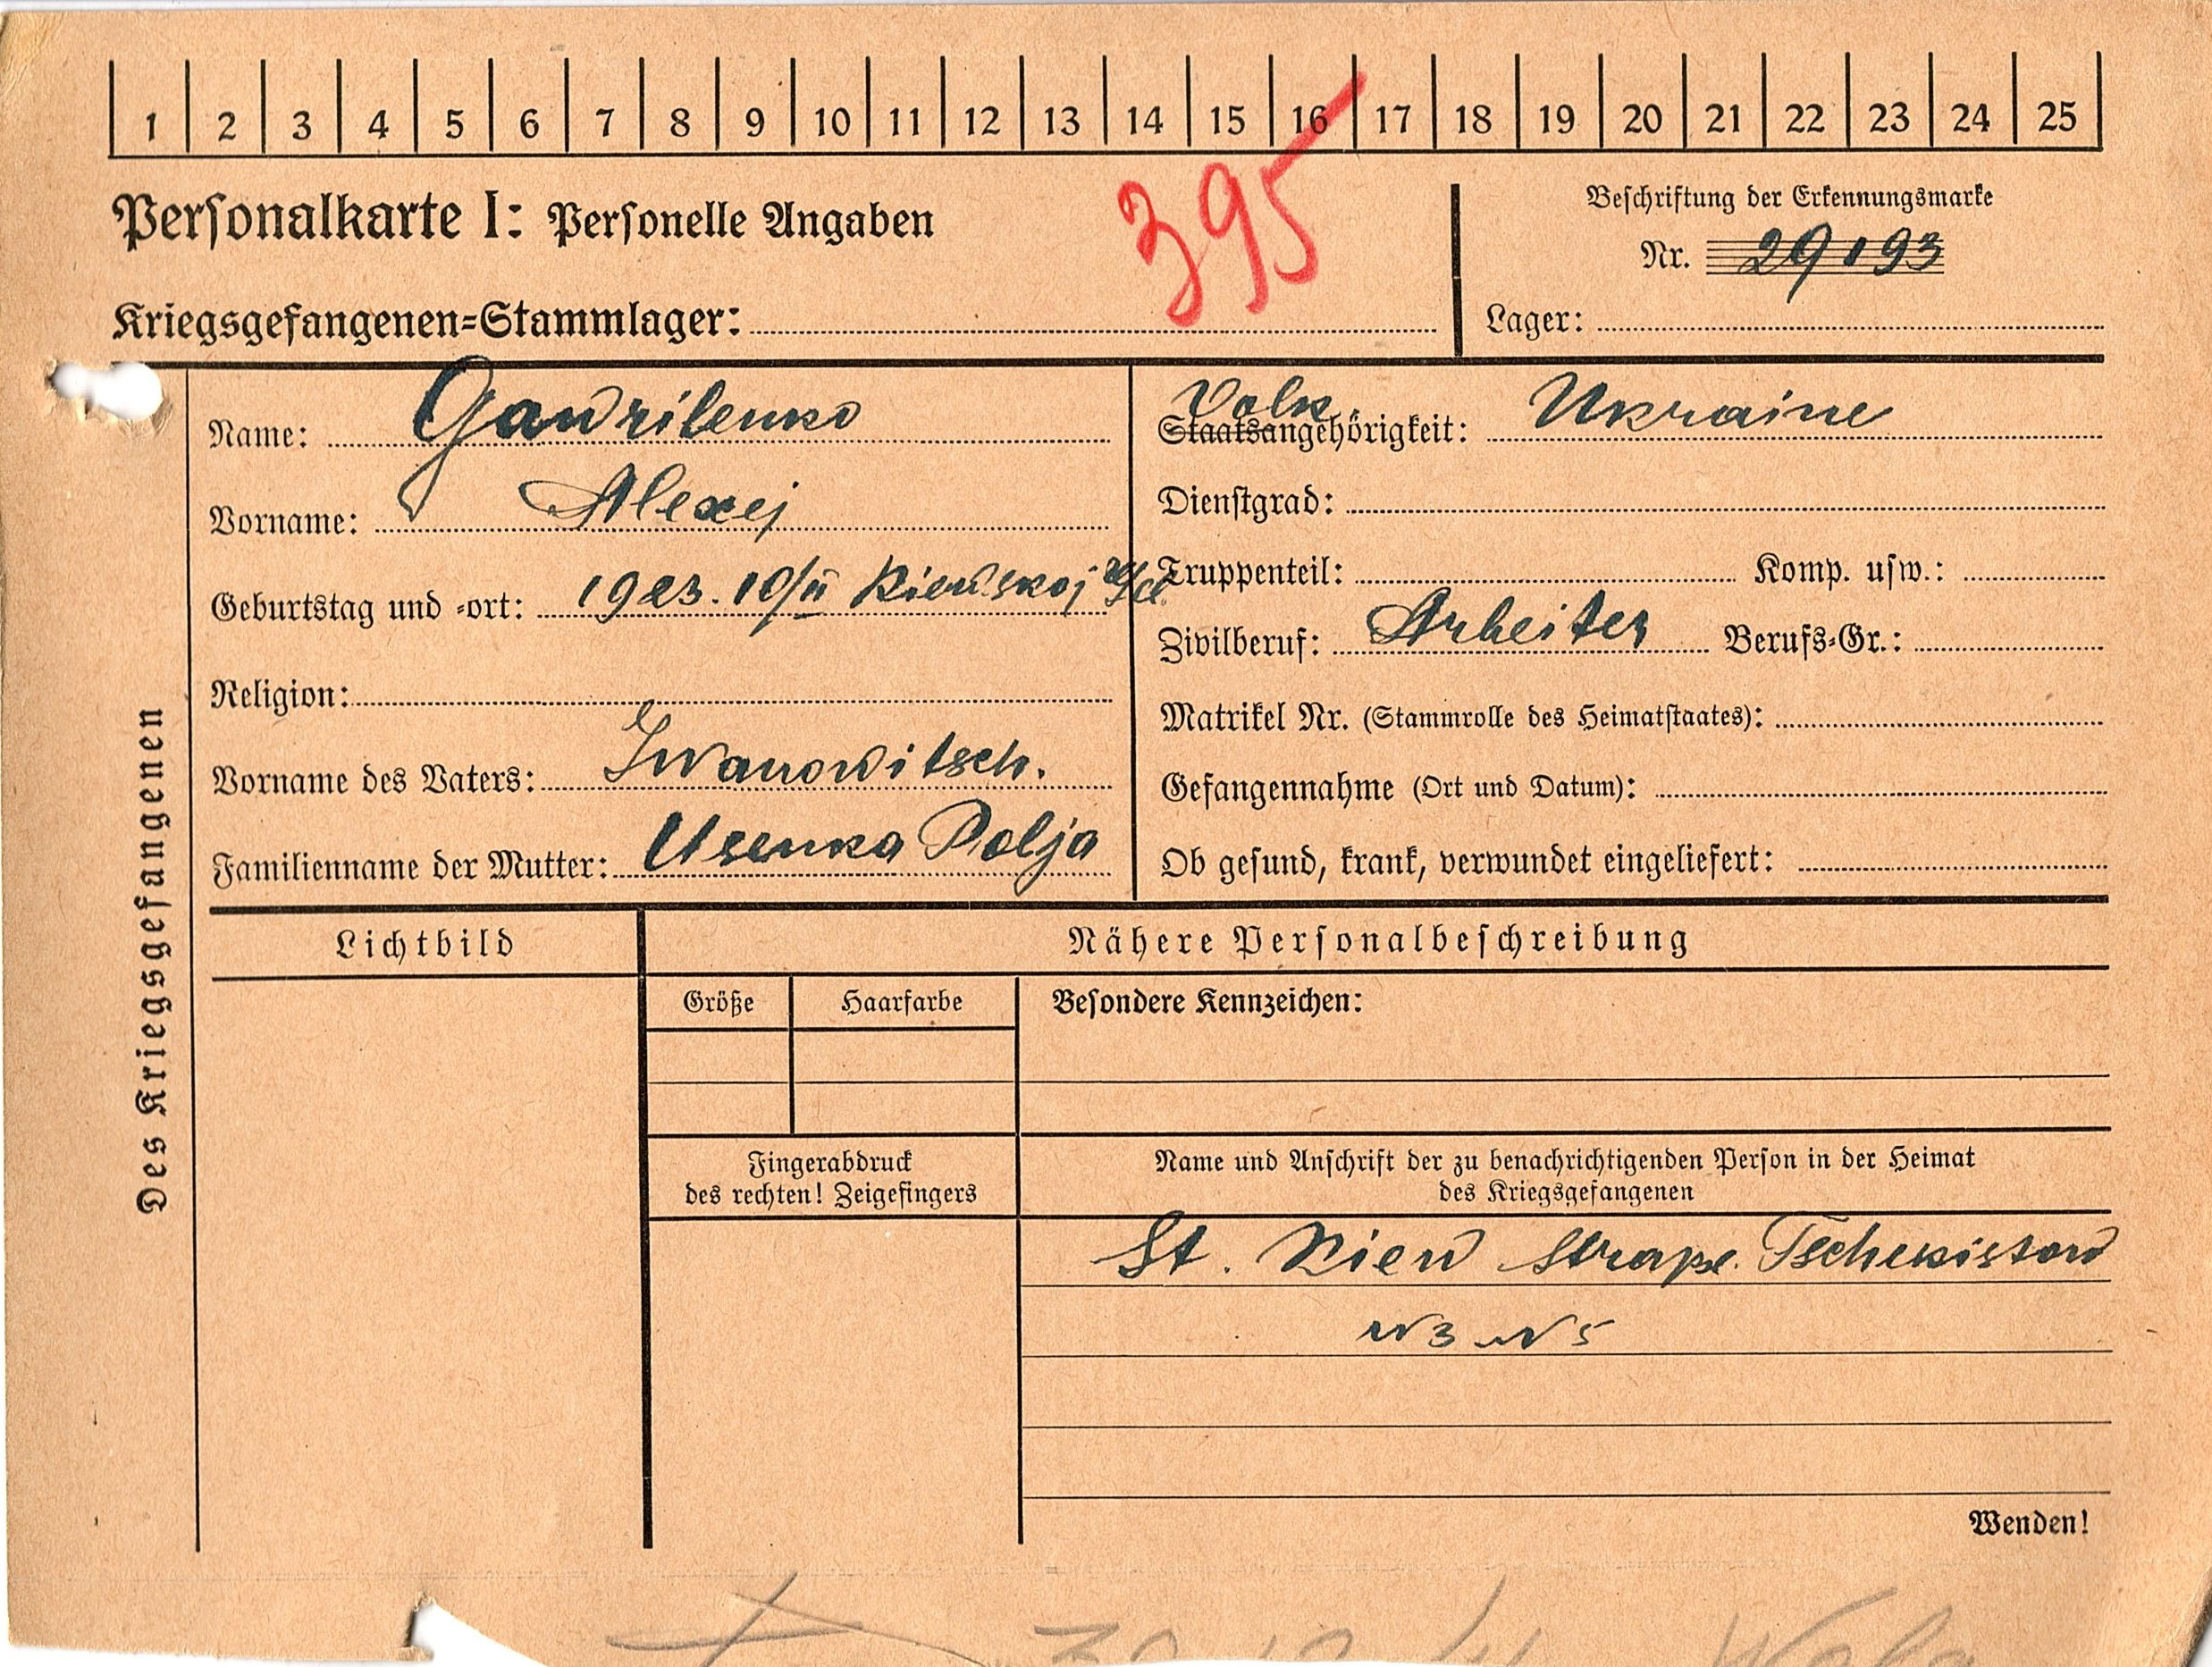 1 2 3 4 5 6 7 8 9 10 11 12 13 14 15 16 17 18 19 20 21 22 23 24 25
Personalkarte I: Personelle Angaben
395
Beschriftung der Erkennungsmarke
Nr. 29193
Kriegsgefangenen-Stammlager:
Lager:
Des Kriegsgefangenen
Name: Gawrilenko
Vorname: Alexej
Geburtstag und -ort: 1923. 10/II Kiewskoj
Religion:
Vorname des Vaters: Iwanowitsch.
Familienname der Mutter: Usenka Polja
Volk
Staatsangehörigkeit: Ukraine
Dienstgrad:
Truppenteil: Komp. usw.:
Zivilberuf: Arbeiter Berufs-Gr.:
Matrikel Nr. (Stammrolle des Heimatstaates):
Gefangennahme (Ort und Datum):
Ob gesund, krank, verwundet eingeliefert:
Lichtbild
Nähere Personalbeschreibung
Größe Haarfarbe
Besondere Kennzeichen:
Fingerabdruck
des rechten! Zeigefingers
Name und Anschrift der zu benachrichtigenden Person in der Heimat
des Kriegsgefangenen
St. Kiew Straße Tschekistow
N3 N5
Wenden!